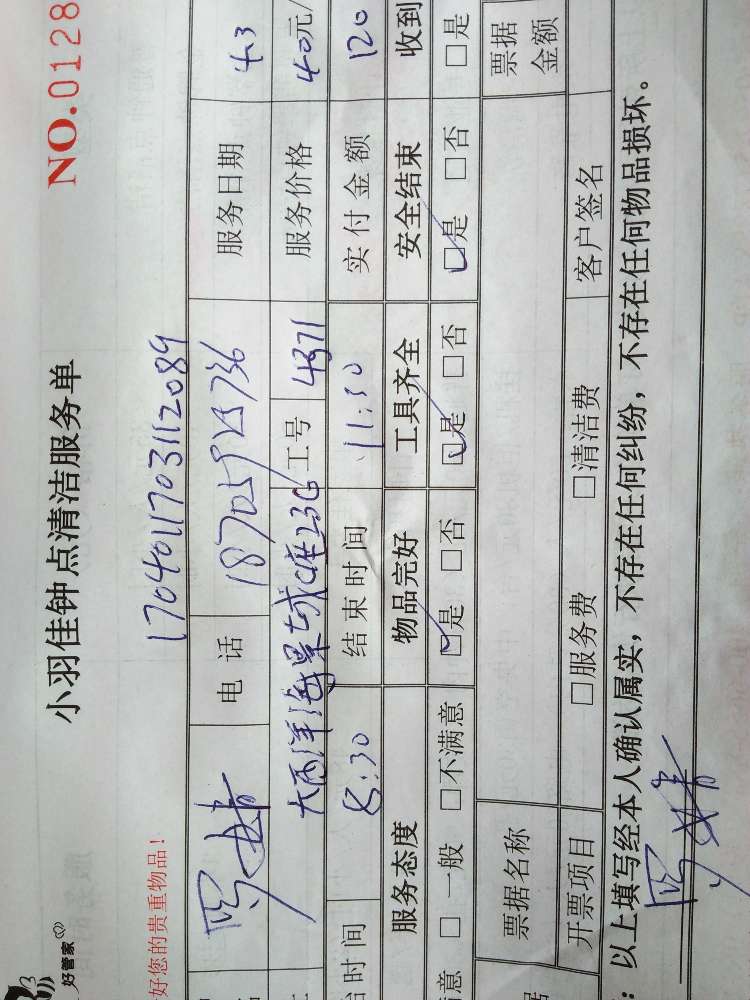 好管家
小羽佳钟点清洁服务单 NO.0128
好您的贵重物品！ 1704011703112089
电话 服务日期 4.3
大西洋海景城C座23G 工号 4371 服务价格 40元/
时间 8:30 结束时间 11:30 实付金额 120
服务态度 物品完好 工具齐全 安全结束 收到
意 □ 一般 □不满意 ☑是 □否 ☑是 □否 ☑是 □否 □是
票据名称 票据金额
开票项目 □服务费 □清洁费 客户签名
：以上填写经本人确认属实，不存在任何纠纷，不存在任何物品损坏。